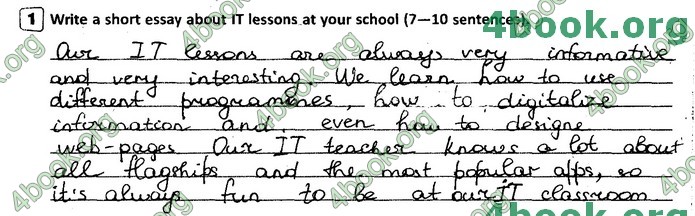 4book.org
1 Write a short essay about IT lessons at your school (7—10 sentences).
Our IT lessons are always very informative
and very interesting. We learn how to use
different programmes, how to digitalize
information and even how to designe
web-pages Our IT teacher knows a lot about
all flagships and the most popular apps, so
it's always fun to be at our IT classroom